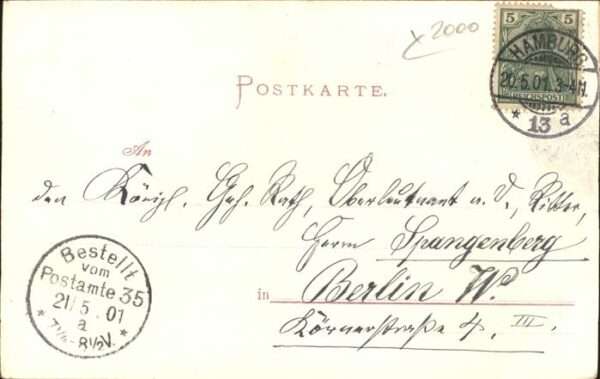 x 2000
5 5
REICHSPOST
HAMBURG
20.5.01. 3-4N.
* 13 a
POSTKARTE.
An
den Königl. Geh. Rath, Oberleutnant a. D., Ritter,
Herrn Spangenberg
in Berlin W.
Körnerstraße 4, III.
Bestellt
vom
Postamte 35
21/5.01
a